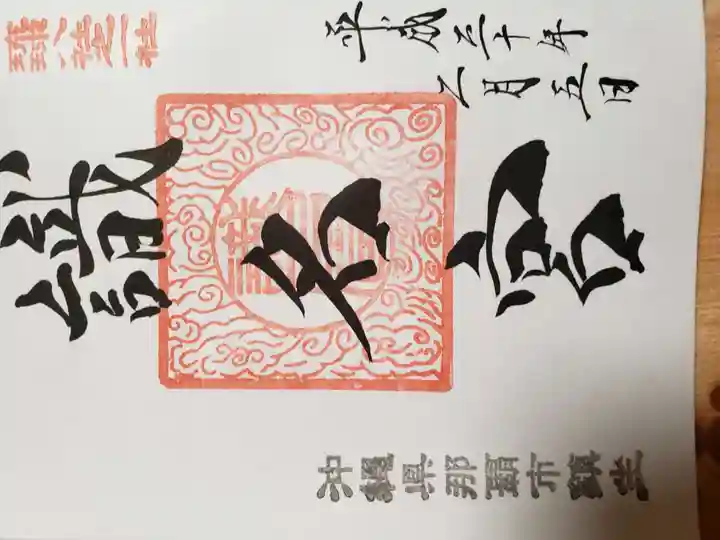 琉球八社之一社
平成三十年
二月五日
識名宮
沖縄県那覇市鎮坐